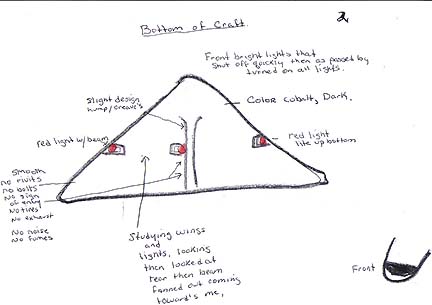 Bottom of Craft.
2
Front bright lights that
shut off quickly then as passed by
turned on all lights.
Slight design
hump/creave's
Color cobalt, Dark.
red light w/beam
red light
lite up bottom
Smooth
no rivits
no bolts
No sign
of entry
No tires
No exhaust
No noise
No fumes
Studying wings
and
lights, looking
then looked at
rear then beam
fanned out coming
toward's me,
Front